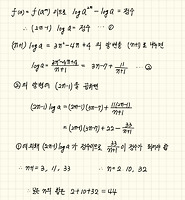 f(a) = f(a²ⁿ) 이므로 log a²ⁿ - log a = 정수
∴ (2n-1) log a = 정수 … ①
(n+1) log a = 3n²-4n+4 의 양변을 (n+1)로 나누면
log a = \frac{3n²-4n+4}{n+1} = 3n-7 + \frac{11}{n+1} … ②
② 의 양변에 (2n-1)을 곱하면
(2n-1) log a = (2n-1)(3n-7) + \frac{11(2n-1)}{n+1}
= (2n-1)(3n-7) + 22 - \frac{33}{n+1}
① 에 의해 (2n-1) log a 가 정수이므로 \frac{33}{n+1} 이 정수가 되어야 함
∴ n+1 = 3, 11, 33 ∴ n = 2, 10, 32
∴ 모든 n의 합은 2+10+32 = 44